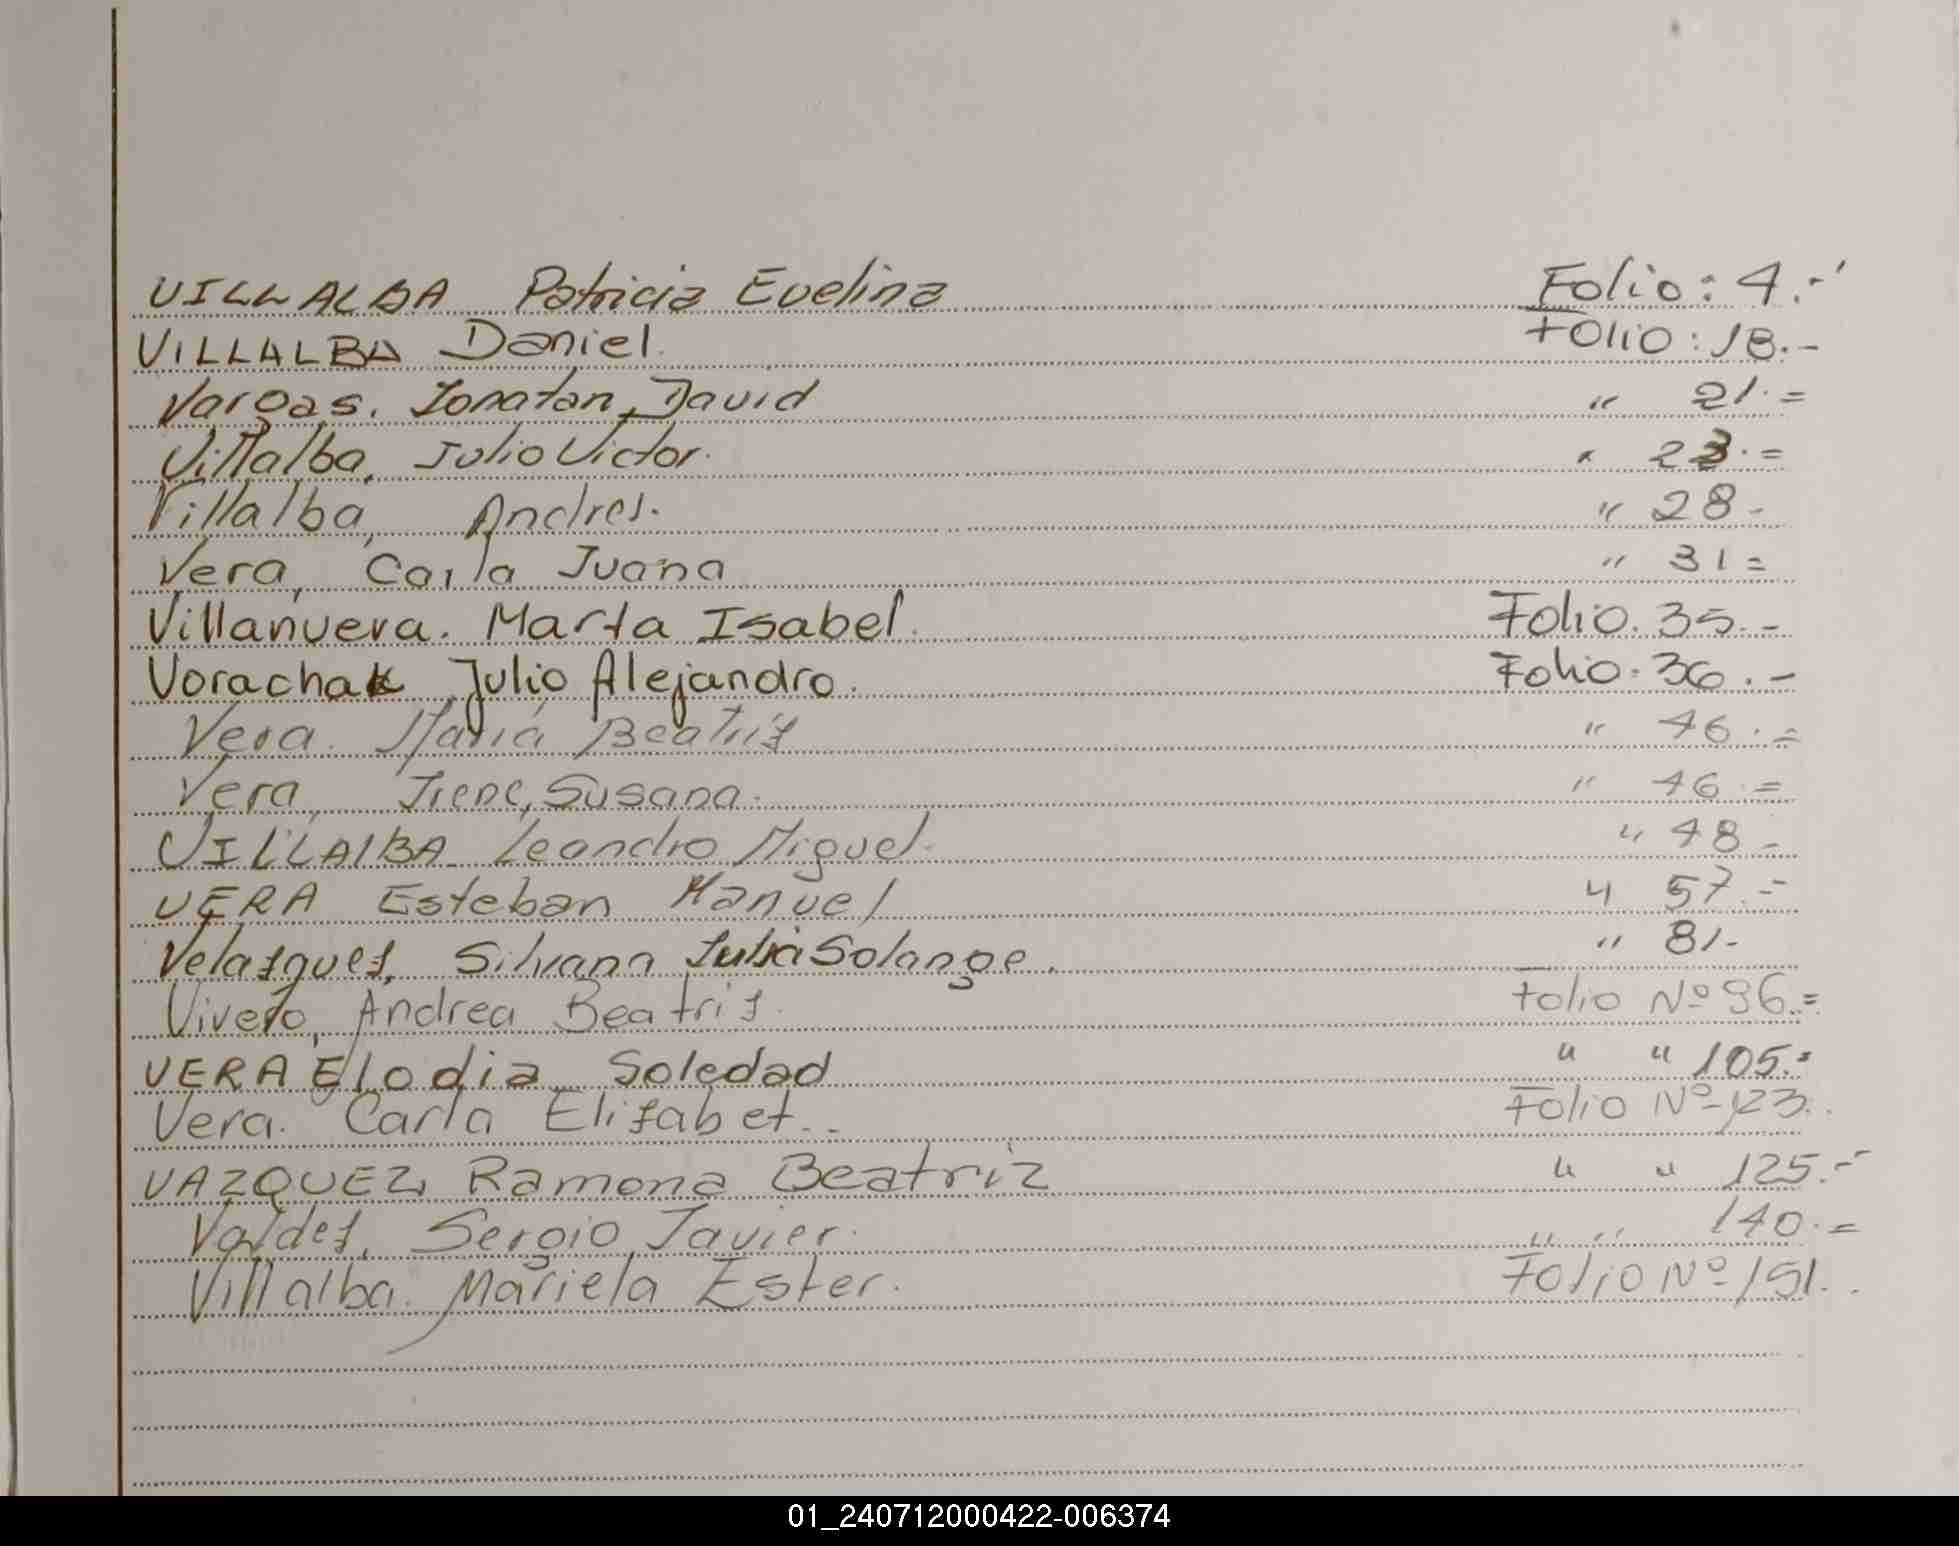 VILLALBA Patricia Evelina Folio: 4.-
VILLALBA Daniel. Folio: 18.-
Vargas, Jonatan, David " 21.=
Villalba, Julio Victor. " 23.=
Villalba, Andres. " 28-
Vera, Carla Juana " 31=
Villanueva. Marta Isabel. Folio. 35.-
Vorachak Julio Alejandro. Folio. 36.-
Vera. María Beatriz " 46.=
Vera, Irene, Susana. " 46.=
VILLALBA Leandro Miguel. " 48-
VERA Esteban Manuel " 57.=
Velazquez, Silvana Julia Solange. " 81-
Vivero, Andrea Beatriz. Folio Nº 96.=
VERA Elodia Soledad " " 105.=
Vera. Carla Elizabet.. Folio Nº 123.
VAZQUEZ, Ramona Beatriz " " 125.-
Valdez, Sergio Javier. " " 140.=
Villalba. Mariela Ester. Folio Nº 151..
01_240712000422-006374